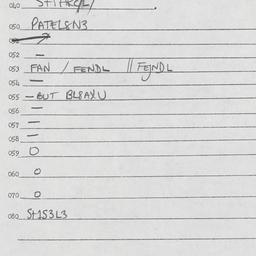 050 PATEL8N3
052 —
053 FAN / FENDL || FEJNDL
054 —
055 — BUT BL8AXU
056 —
057 —
058 —
059 O
060 O
070 O
080 St1S3L3